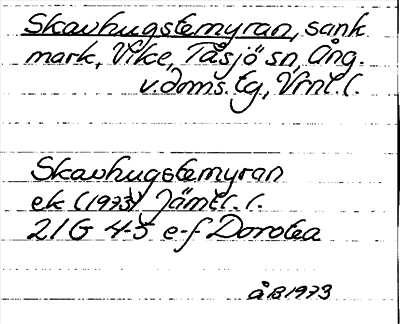 Skavhugstemyran, sank
mark, Vike, Tåsjö sn, Ång.
v. doms. tg, Vrnl. l.
Skavhugstemyran
ek (1973) Jämtl. l.
21G 4-5 e-f Dorotea
åB1973